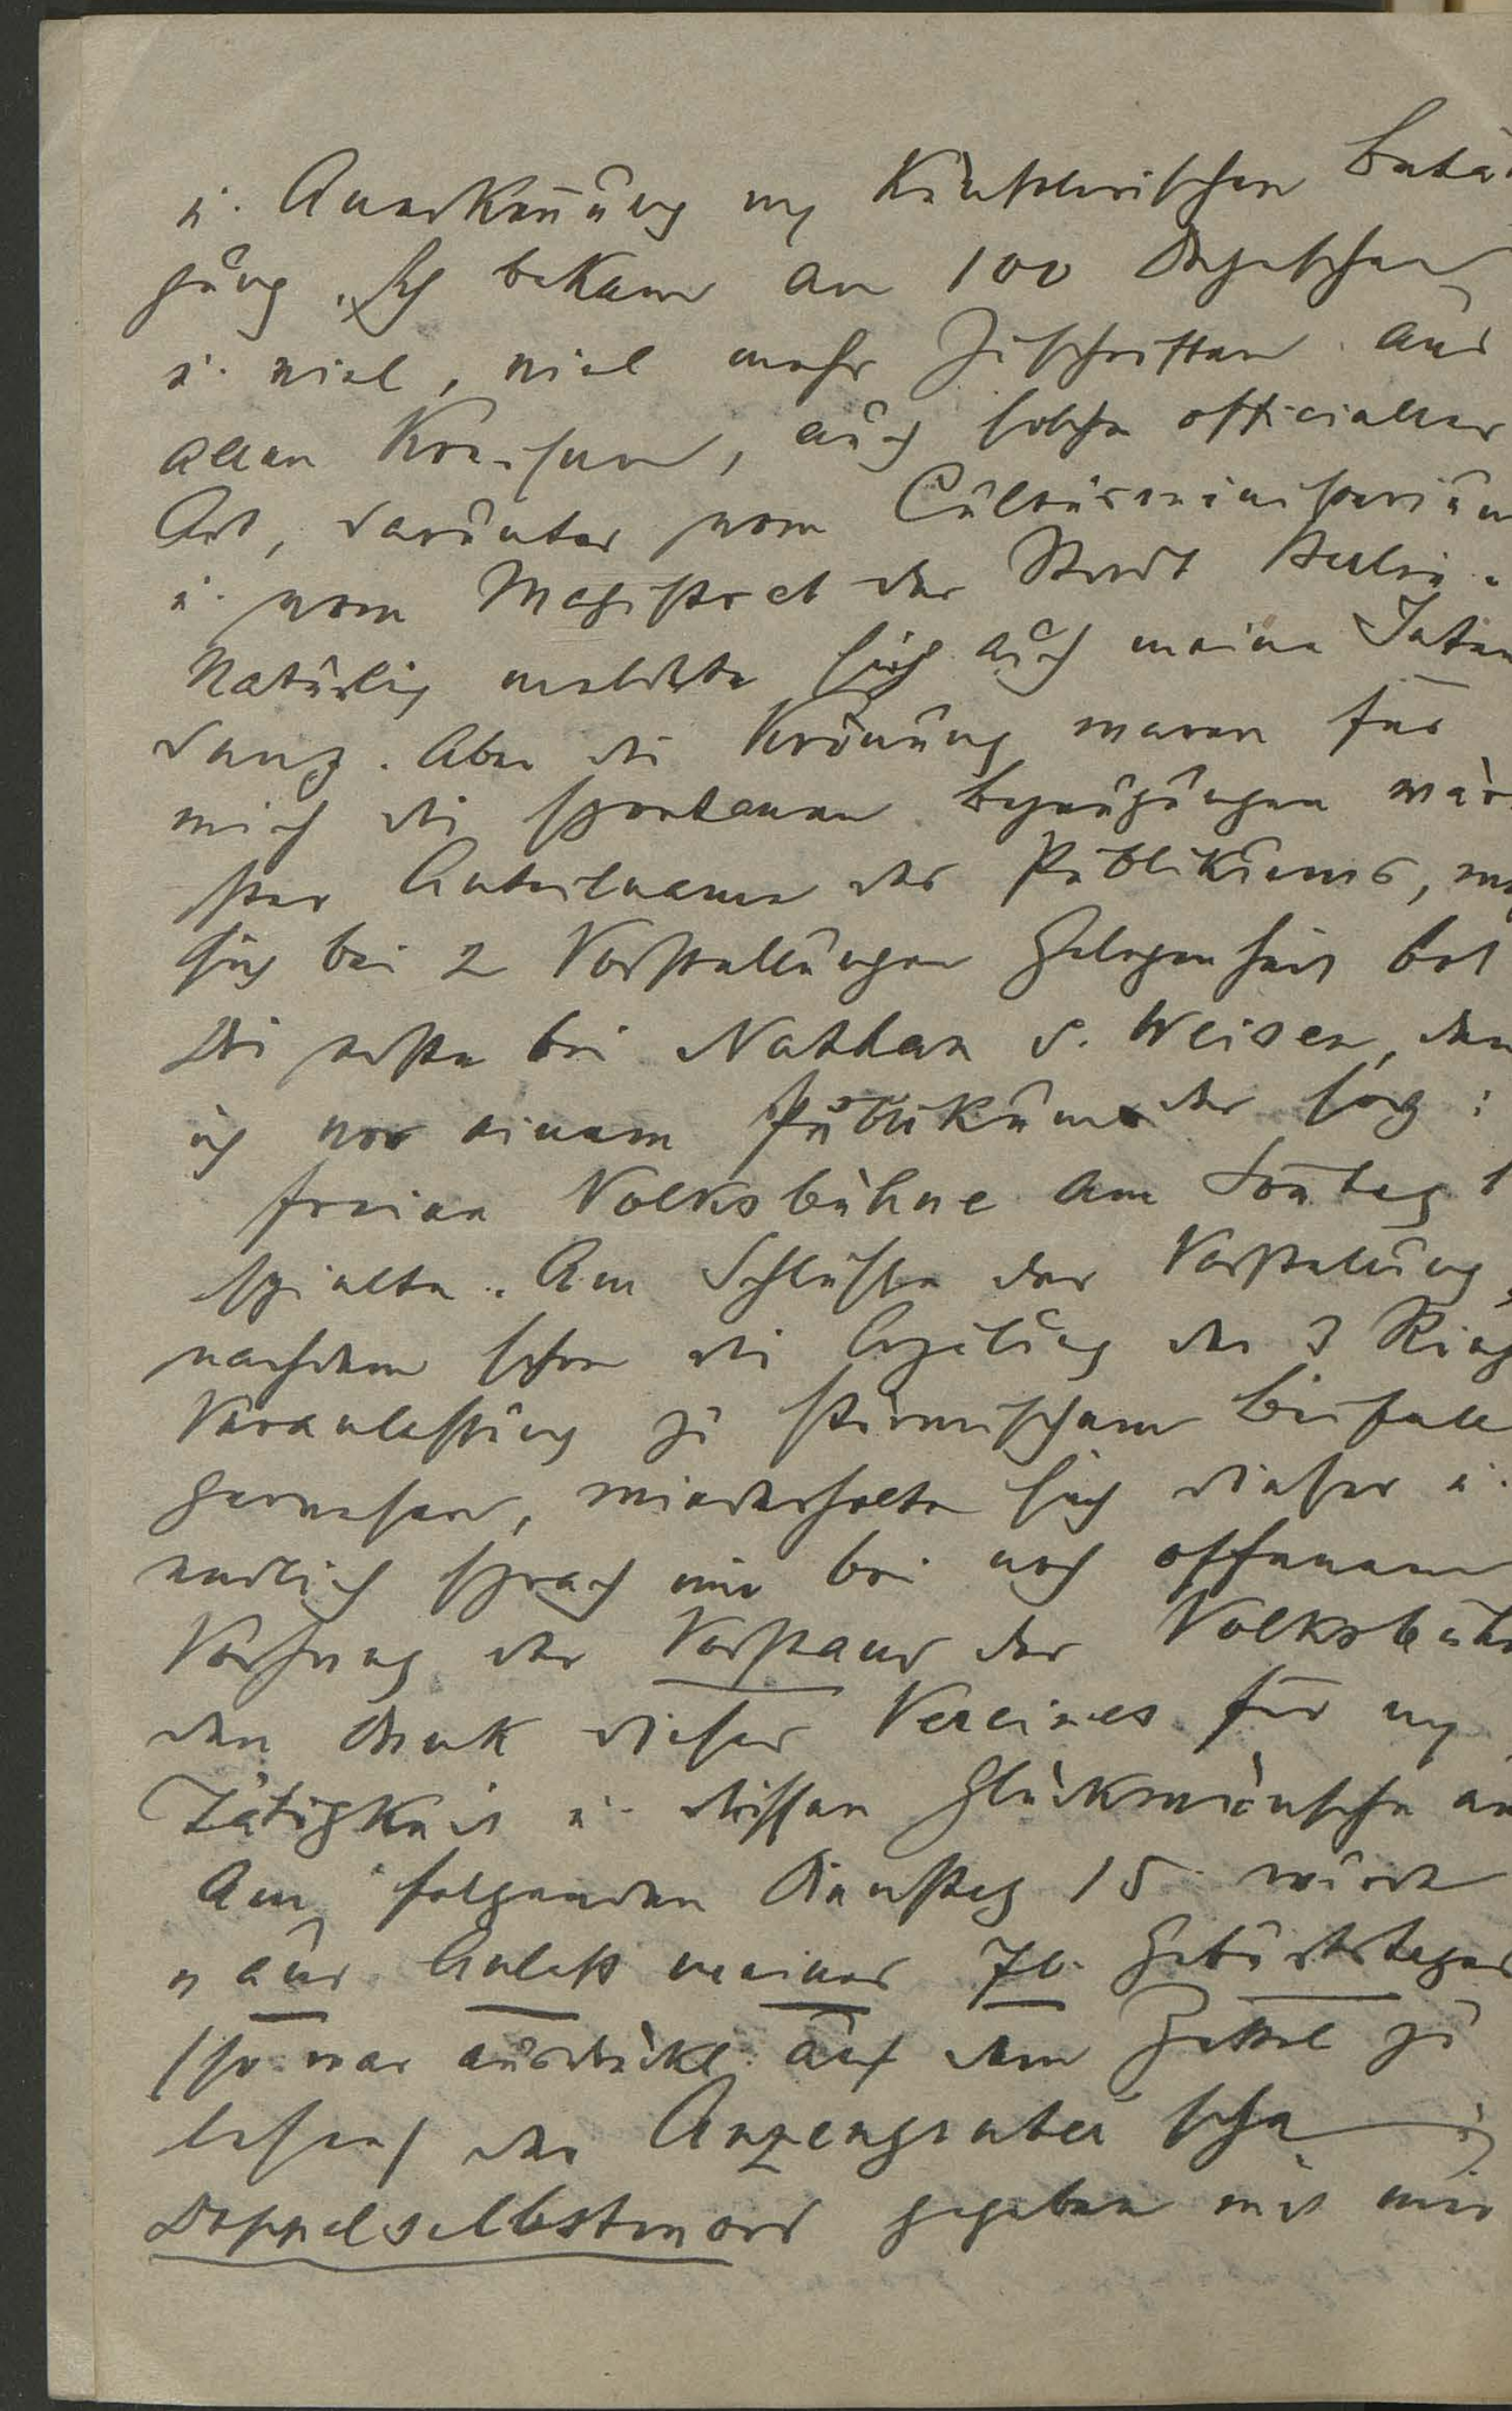 u. Anerkennung my künstlerischen Betä
gung. Ich bekam an 100 Depeschen
u. viel, viel mehr Zuschriften aus
allen Kreisen, auch solche officieller
Art, darunter vom Cultusministerium
u. vom Magistrat der Stadt Berlin.
Natürlich meldete sich auch meine Inten
danz. Aber die Krönung waren für
mich die spontanen Bezeugungen wärm
ster Anteilname des Publikums, wozu
sich bei 2 Vorstellungen Gelegenheit bot
Die erste bei Nathan d. Weisen, den
ich vor einem Publikum der sog:
freien Volksbühne am Sontag 1
spielte. Am Schlusse der Vorstellung,
nachdem schon die Erzälung der 3 Ring
Veranlassung zu stürmischem Beifall
gewesen, wiederholte sich dieser u.
endlich sprach mir bei noch offenem
Vorhang der Vorstand der Volksbühn
den Dank dieses Vereines für my
Tätigkeit u. dessen Glückwünsche aus
Am folgenden Dienstag 15 wurde
"aus Anlass meines 70. Geburtstages
(so war ausdrückl. auf dem Zettel zu
lesen) der Anzengruber'sche
Doppelselbstmord gegeben mit mir